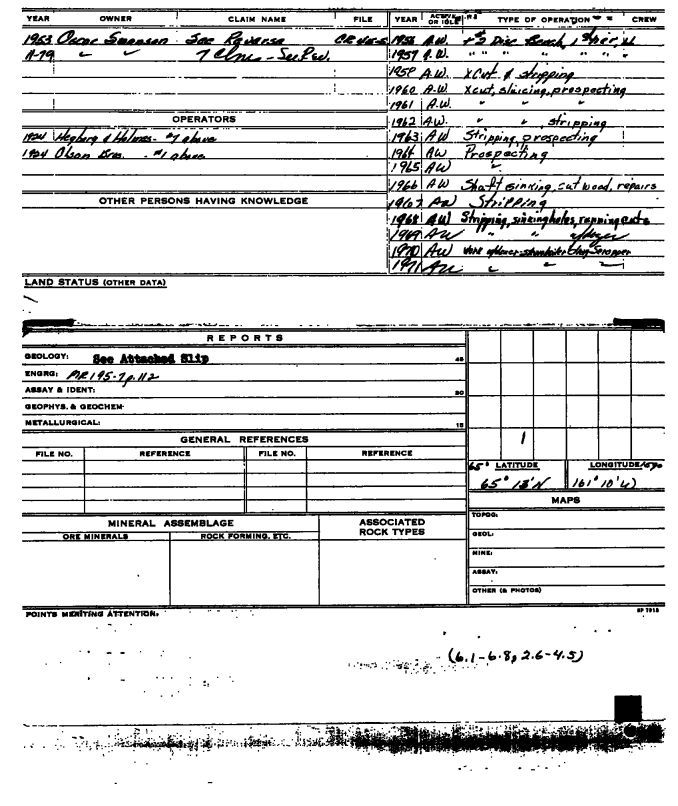 YEAR OWNER CLAIM NAME FILE YEAR ACTIVE OR IDLE TYPE OF OPERATION CREW
1953 Oscar Swanson See Reverse 1956 A.W. #2 Disc Bench,
11-79 " " 7 Clms - See Rev. 1957 A.W. " " " "
1958 A.W. Xcut & stripping
1960 A.W. Xcut, sluicing, prospecting
1961 A.W. " " "
OPERATORS
1962 A.W. " " , stripping
1924 Hegberg & Holmes - #7 above
1963 AW Stripping, prospecting
1924 Olson Bros. - #1 above
1964 AW Prospecting
1965 AW "
1966 AW Shaft sinking, cut wood, repairs
OTHER PERSONS HAVING KNOWLEDGE
1967 AW Stripping
1968 AW Stripping, sinking holes, running cuts
1969 AW " " "
1970 AW
1971 AW " " "
LAND STATUS (OTHER DATA)
REPORTS
GEOLOGY: See Attached Slip 45
ENGRG: PR 195-7 p. 112
ASSAY & IDENT: 30
GEOPHYS. & GEOCHEM-
METALLURGICAL: 15
1
GENERAL REFERENCES
FILE NO. REFERENCE FILE NO. REFERENCE
65° LATITUDE LONGITUDE
65° 13'N 161° 10'W
MAPS
TOPOG:
MINERAL ASSEMBLAGE ASSOCIATED ROCK TYPES
ORE MINERALS ROCK FORMING, ETC.
GEOL:
MINE:
ASSAY:
OTHER (& PHOTOS)
POINTS MERITING ATTENTION:
(6.1-6.8, 2.6-4.5)